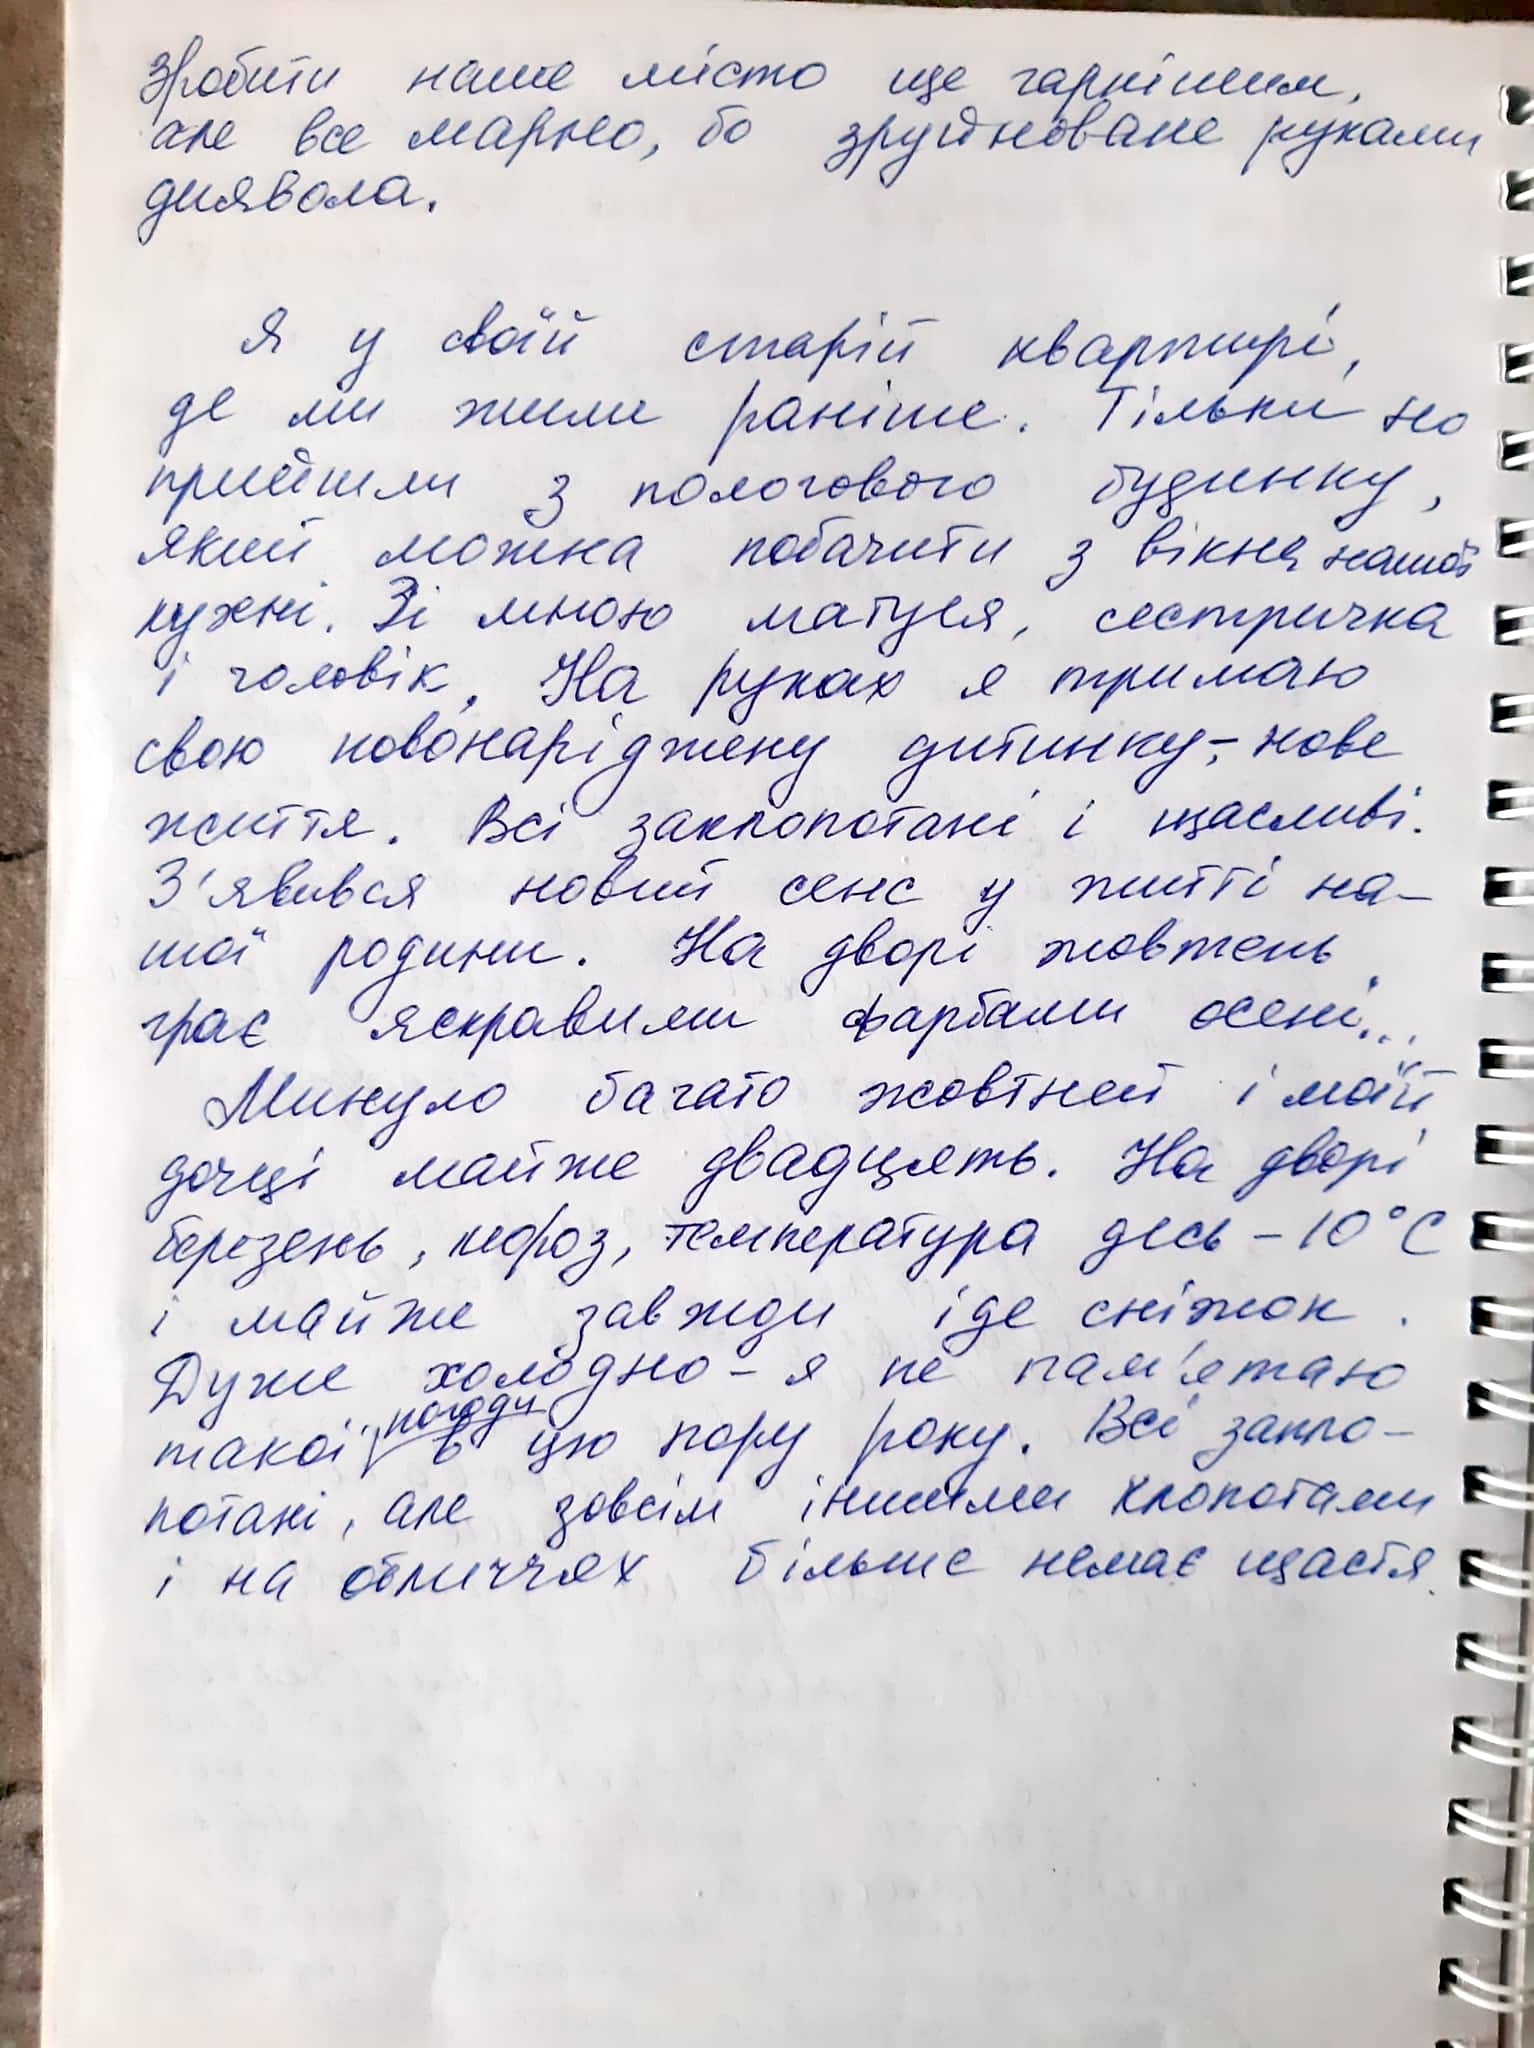 зробити наше місто ще гарнішим,
але все марно, бо зруйноване руками
диявола.
Я у своїй старій квартирі,
де ми жили раніше. Тільки но
прийшли з пологового будинку,
який можна побачити з вікна нашої
кухні. Зі мною матуся, сестричка
і чоловік. На руках я тримаю
свою новонаріджену дитинку, - нове
життя. Всі заклопотані і щасливі.
З'явився новий сенс у житті на-
шої родини. На дворі жовтень
грає яскравими фарбами осені...
Минуло багато жовтней і моїй
дочці майже двадцять. На дворі
березень, мороз, температура десь -10°С
і майже завжди іде сніжок.
Дуже холодно - я не пам'ятаю
такої погоди в цю пору року. Всі закло-
потані, але зовсім іншими клопотами
і на обличчях більше немає щастя.